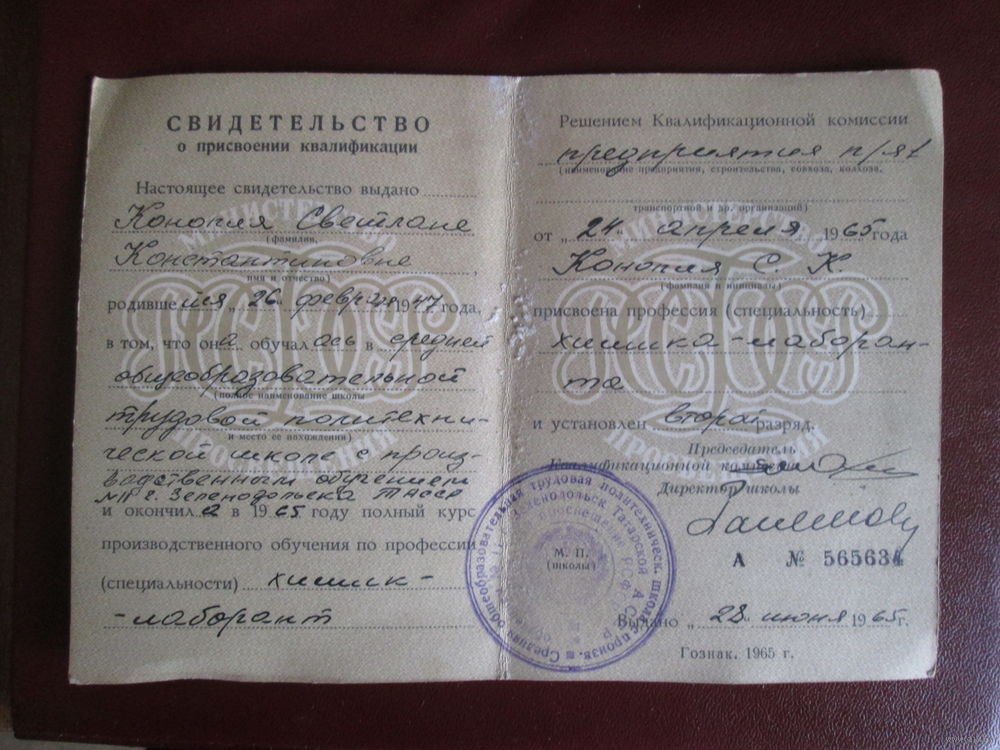 СВИДЕТЕЛЬСТВО
о присвоении квалификации
Настоящее свидетельство выдано
Конопля Светлане
(фамилия,
Константиновне
имя и отчество)
родившейся „26“ февраля 1947 года,
в том, что она обучалась в средней
общеобразовательной
(полное наименование школы
трудовой политехни-
и место ее нахождения)
ческой школе с произ-
водственным обучением
№11 г. Зеленодольска ТАССР
и окончила в 1965 году полный курс
производственного обучения по профессии
(специальности) химик-
-лаборант
Решением Квалификационной комиссии
предприятия п/я 1
(наименование предприятия, строительства, совхоза, колхоза,
транспортной и др. организаций)
от „24“ апреля 1965 года
Конопля С. К.
(фамилия и инициалы)
присвоена профессия (специальность)
химика-лаборан-
та
и установлен второй разряд.
Председатель
Квалификационной комиссии
Директор школы
А № 565634
М. П.
(школы)
Выдано „28“ июня 1965 г.
Гознак. 1965 г.
МИНИСТЕРСТВО
РСФСР
ПРОСВЕЩЕНИЯ
МИНИСТЕРСТВО
РСФСР
ПРОСВЕЩЕНИЯ
Средняя общеобразовательная трудовая политехническ. школа с произв.